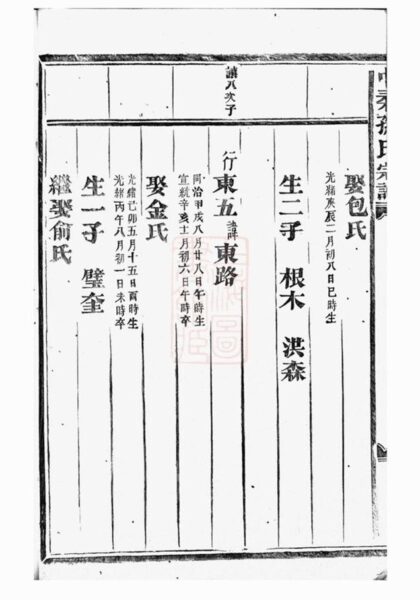 秦孫氏宗譜
娶包氏
光緒庚辰二月初八日巳時生
生二子 根木 洪森
讓八次子
行東五諱東路
同治甲戌八月廿八日午時生
宣統辛亥十二月初六日午時卒
娶金氏
光緒己卯五月十五日酉時生
光緒丙午八月初一日未時卒
生一子 璧奎
繼娶俞氏